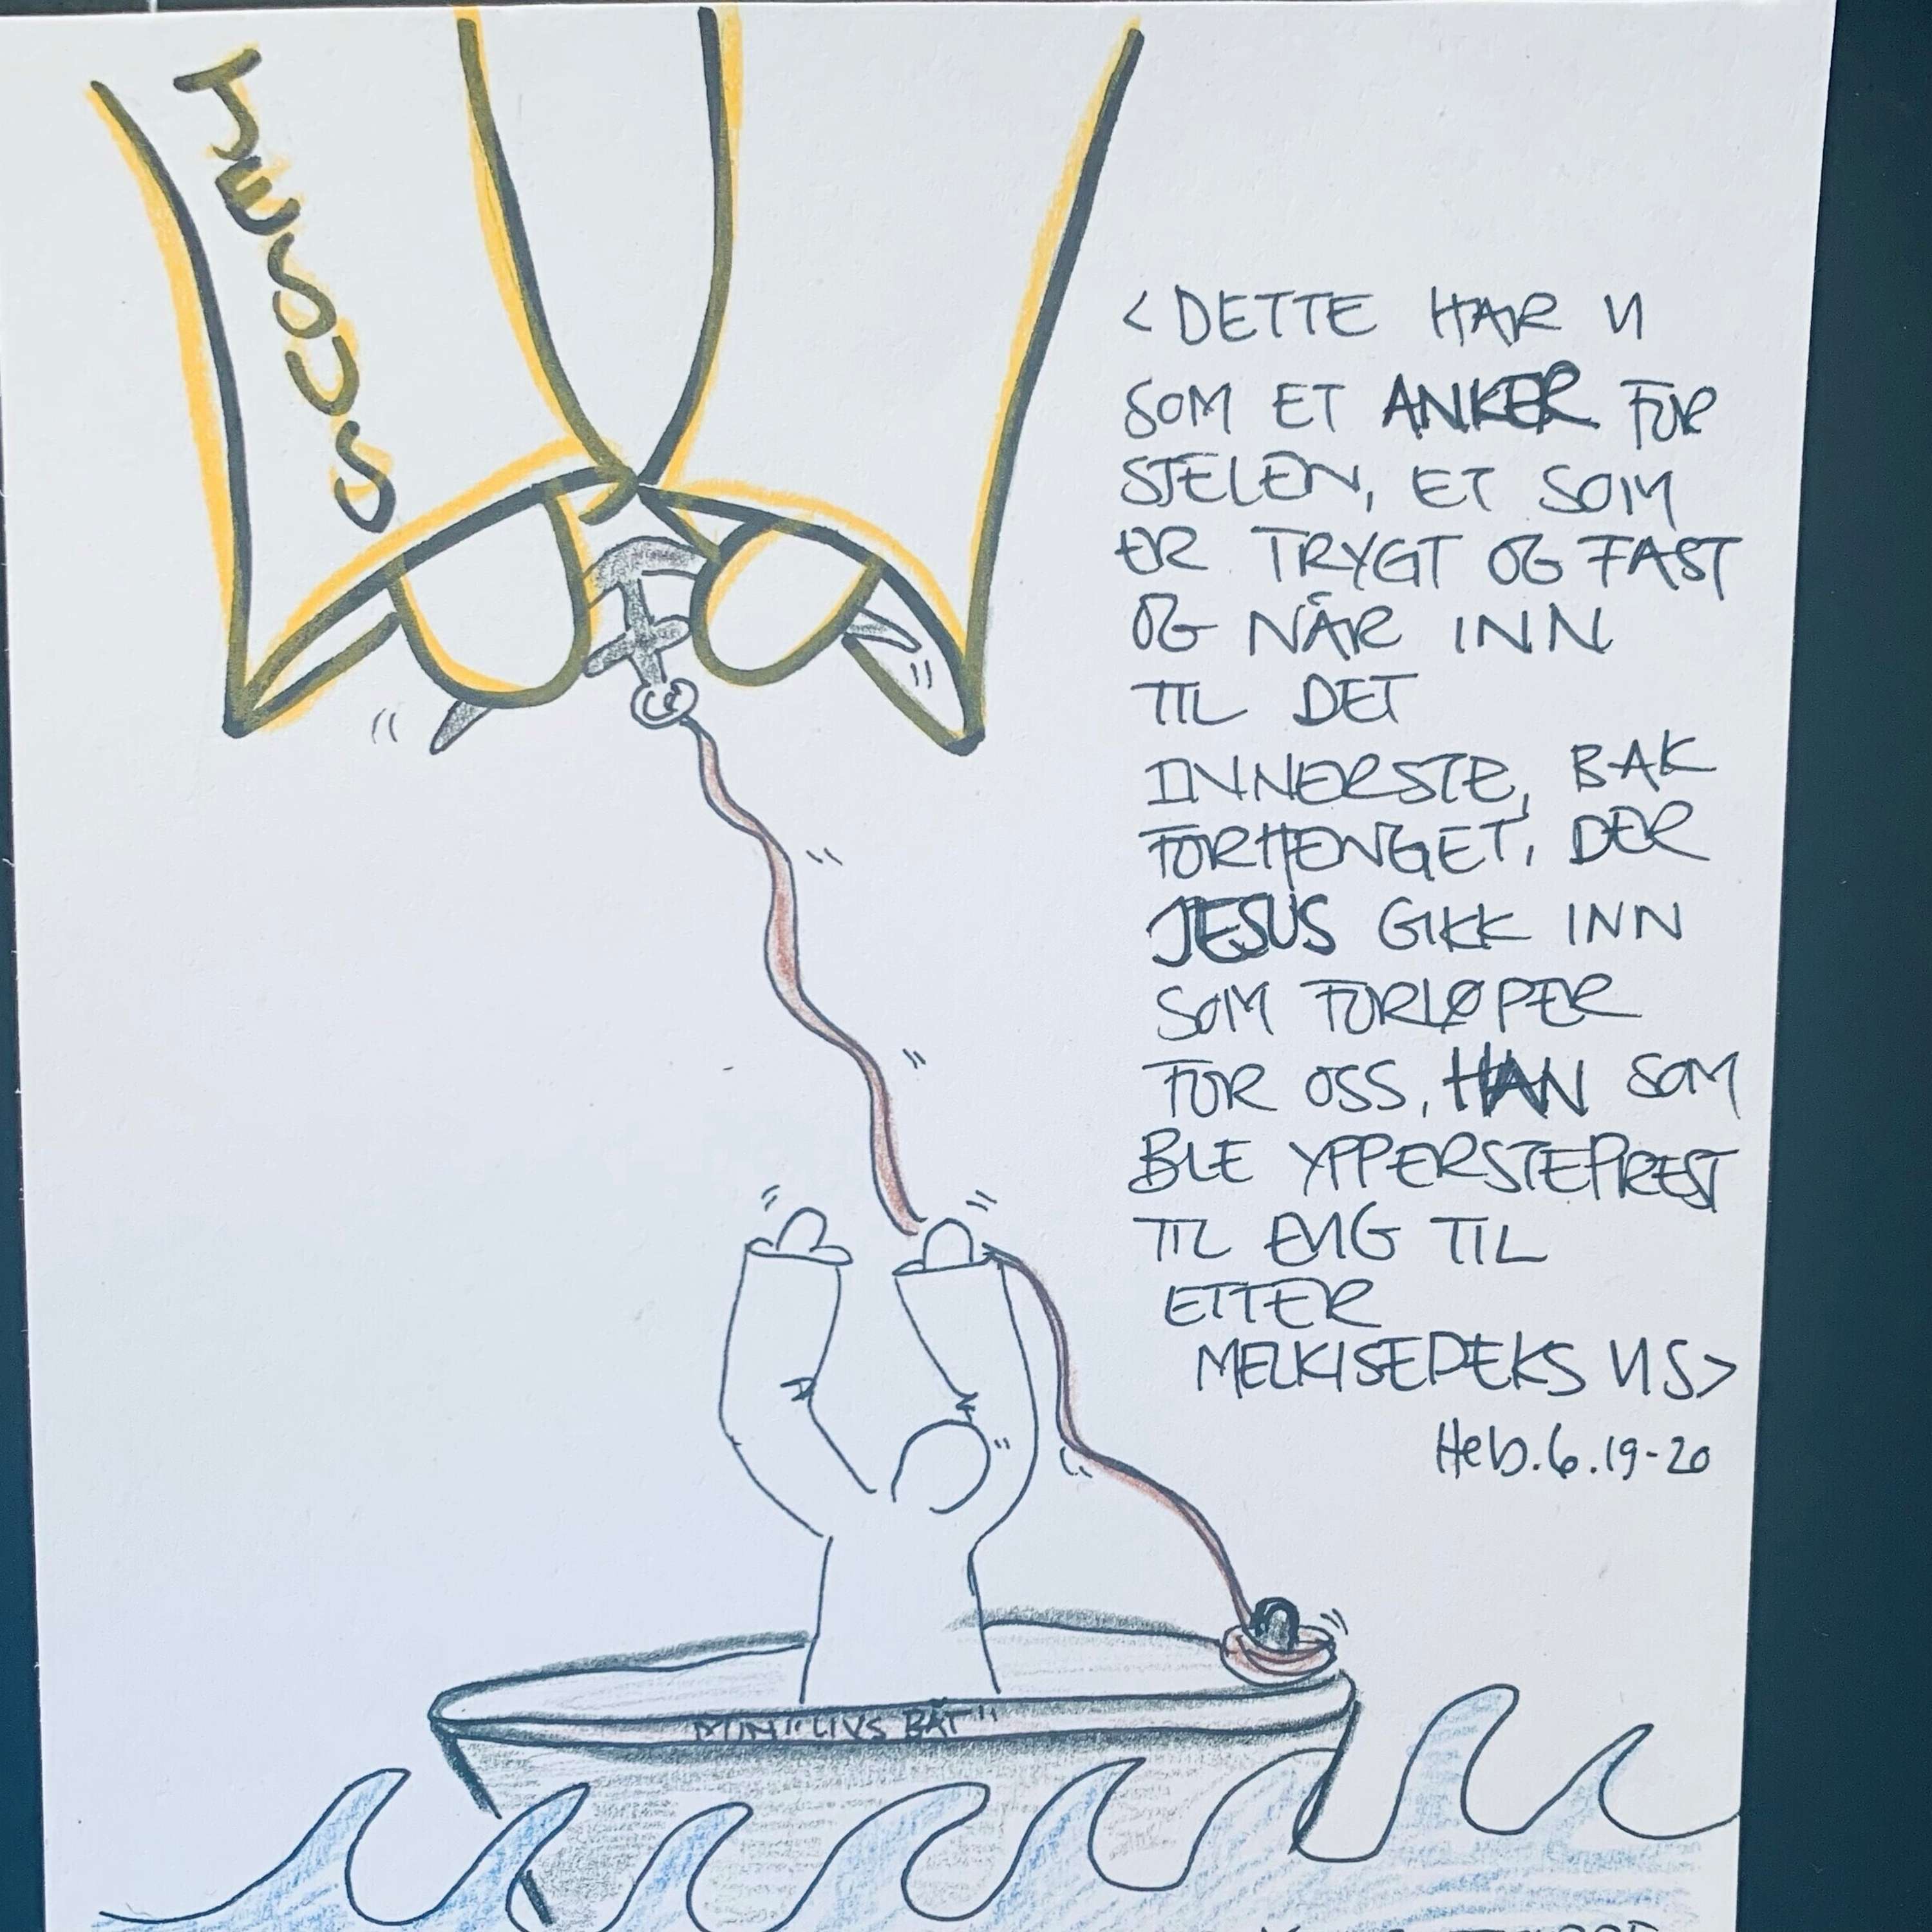 JESUS
<DETTE HAR VI
SOM ET ANKER FOR
SJELEN, ET SOM
ER TRYGT OG FAST
OG NÅR INN
TIL DET
INNERSTE, BAK
FORHENGET, DER
JESUS GIKK INN
SOM FORLØPER
FOR OSS, HAN SOM
BLE YPPERSTEPREST
TIL EVIG TIL
ETTER
MELKISEDEKS VIS>
Heb.6.19-20
MIN "LIVS BÅT"